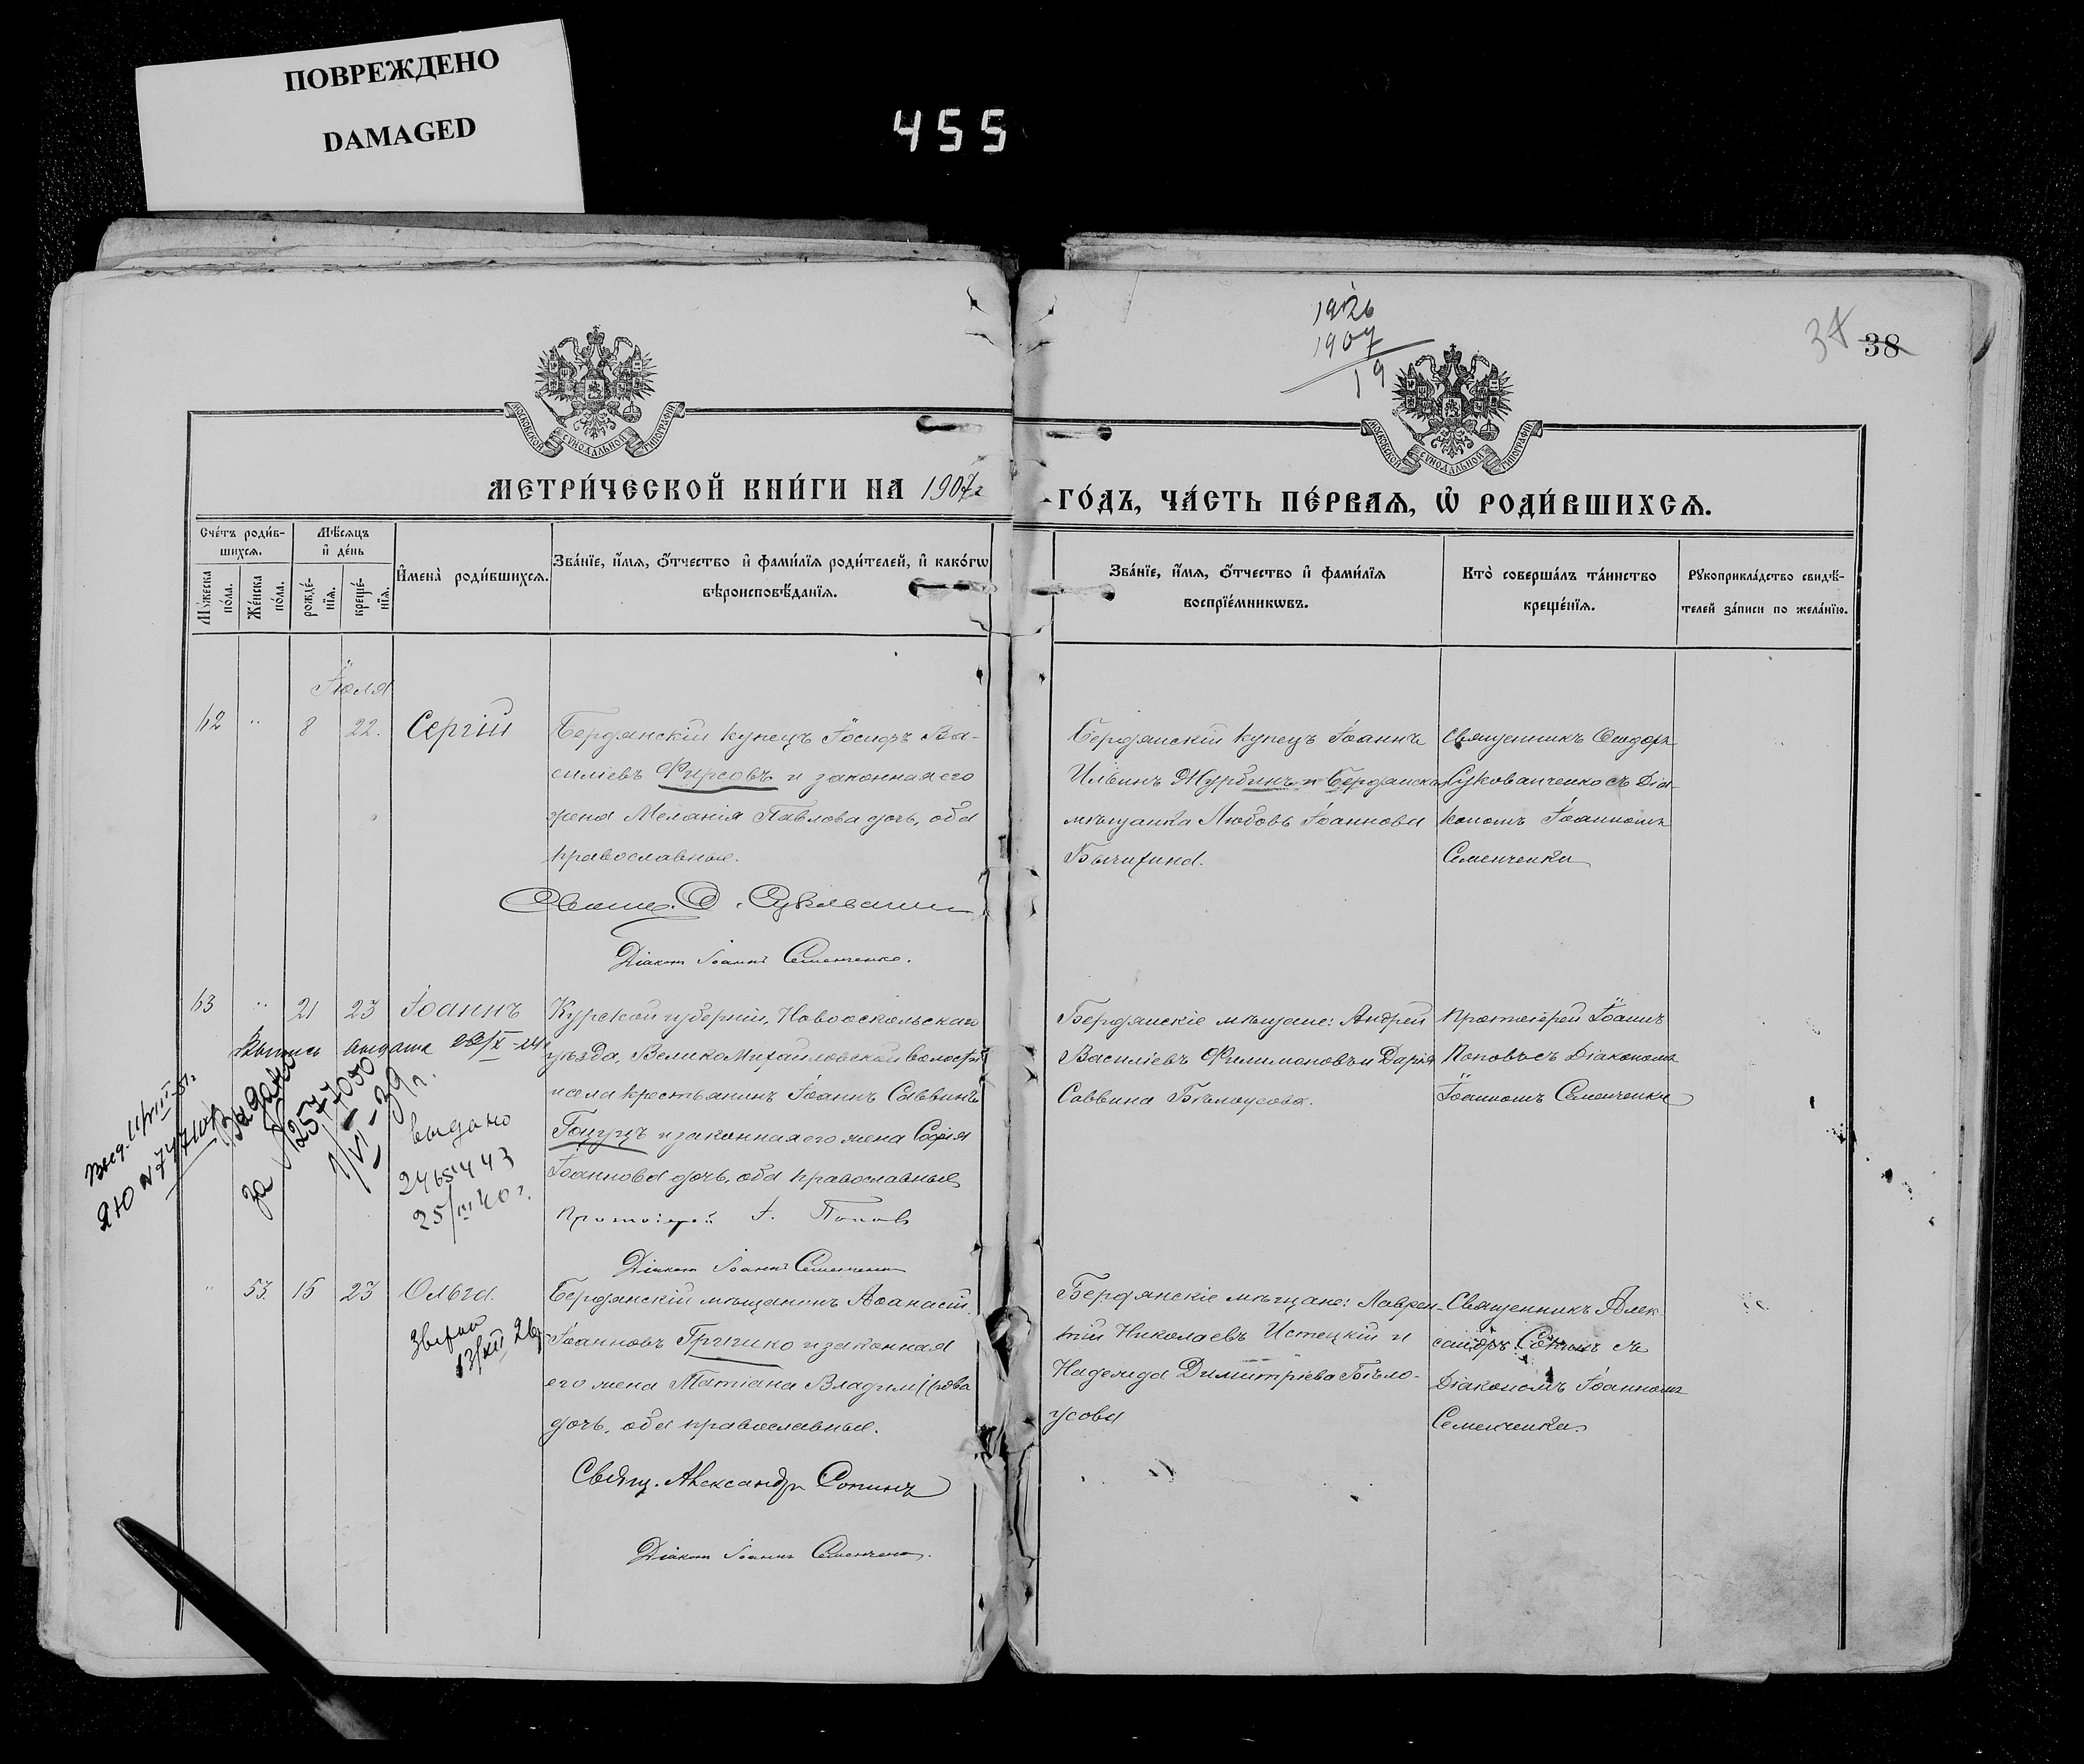 ПОВРЕЖДЕНО
DAMAGED
455
1926
1907
19
38
38
МОСКОВСКОЙ СѴНОДАЛЬНОЙ ТИПОГРАФІИ
МОСКОВСКОЙ СѴНОДАЛЬНОЙ ТИПОГРАФІИ
МЕТРИ́ЧЕСКОЙ КНИ́ГИ НА 1907 г
ГО́ДЪ, ЧА́СТЬ ПЕ́РВАѦ, Ѡ҆ РОДИ́ВШИХСѦ.
Сче́тъ роди́в-
шихсѧ.
Мꙋ́жеска по́ла.
Же́нска по́ла.
Мѣ́сѧцъ
и҆ де́нь
рожде́-
нїѧ.
креще́-
нїѧ.
И҆мена̀ роди́вшихсѧ.
Зва́нїе, и҆́мѧ, ѻ҆́тчество и҆ фами́лїѧ роди́телей, и҆ како́гѡ
вѣ́роисповѣ́данїѧ.
Зва́нїе, и҆́мѧ, ѻ҆́тчество и҆ фами́лїѧ
воспрїе́мникѡвъ.
Кто̀ соверша́лъ та́инство
креще́нїѧ.
Рꙋкоприкла́дство свидѣ́-
телей за́писи по жела́нїю.
Іюля
62 " 8 22. Сергій
Бердянскій купецъ Іосифъ Ва-
силіевъ Фирсовъ и законная его
жена Меланія Павлова дочь, оба
православные.
Діакон Іоаннъ Семенченко.
Бердянскій купецъ Іоаннъ
Ильинъ Журбинъ и Бердянска
мѣщанка Любовь Іоаннова
Священникъ Ѳеодоръ
Сукованченко съ Діа-
кономъ Іоанномъ
Семенченко
63 " 21 23 Іоаннъ
Выпись выдана 22/X-24 г
Выдано
за № 1257050
1/VI-39 г.
выдано
2465443
25/III 40 г.
Курской губерніи, Новооскольскаго
уѣзда, Велико Михайловской волости
и села крестьянинъ Іоаннъ Саввинъ
Гоцуцъ и законная его жена Софія
Іоаннова дочь, оба православные
Протоіерей І. Попов
Діакон Іоаннъ Семенченко
Бердянскіе мѣщане: Андрей
Василіевъ Филимоновъ и Дарія
Саввина Бѣлоусова.
Протоіерей Іоаннъ
Поповъ съ Діакономъ
Іоанномъ Семенченко
" 53. 15 23 Ольга.
13/XII 26
Бердянскій мѣщанинъ Аѳанасій
Іоанновъ Гришко и законная
его жена Татіана Владимірова
дочь, оба православные.
Свящ. Александръ Сопинъ
Діакон Іоаннъ Семенченко.
Бердянскіе мѣщане: Лаврен-
тій Николаевъ Истецкій и
Надежда Димитріева Бѣло-
усова
Священникъ Алек-
сандръ Сопинъ съ
Діакономъ Іоанномъ
Семенченко.